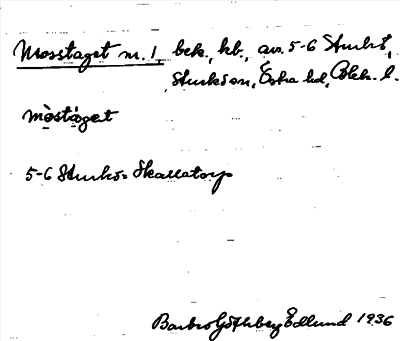 Mosstaget nr. 1, bek., kb., av. 5-6 Sturkö,
Sturkö sn, Östra hd, Blek. l.
mòstàget
5-6 Sturkö = Skallatorp
Barbro Göthberg Edlund 1936